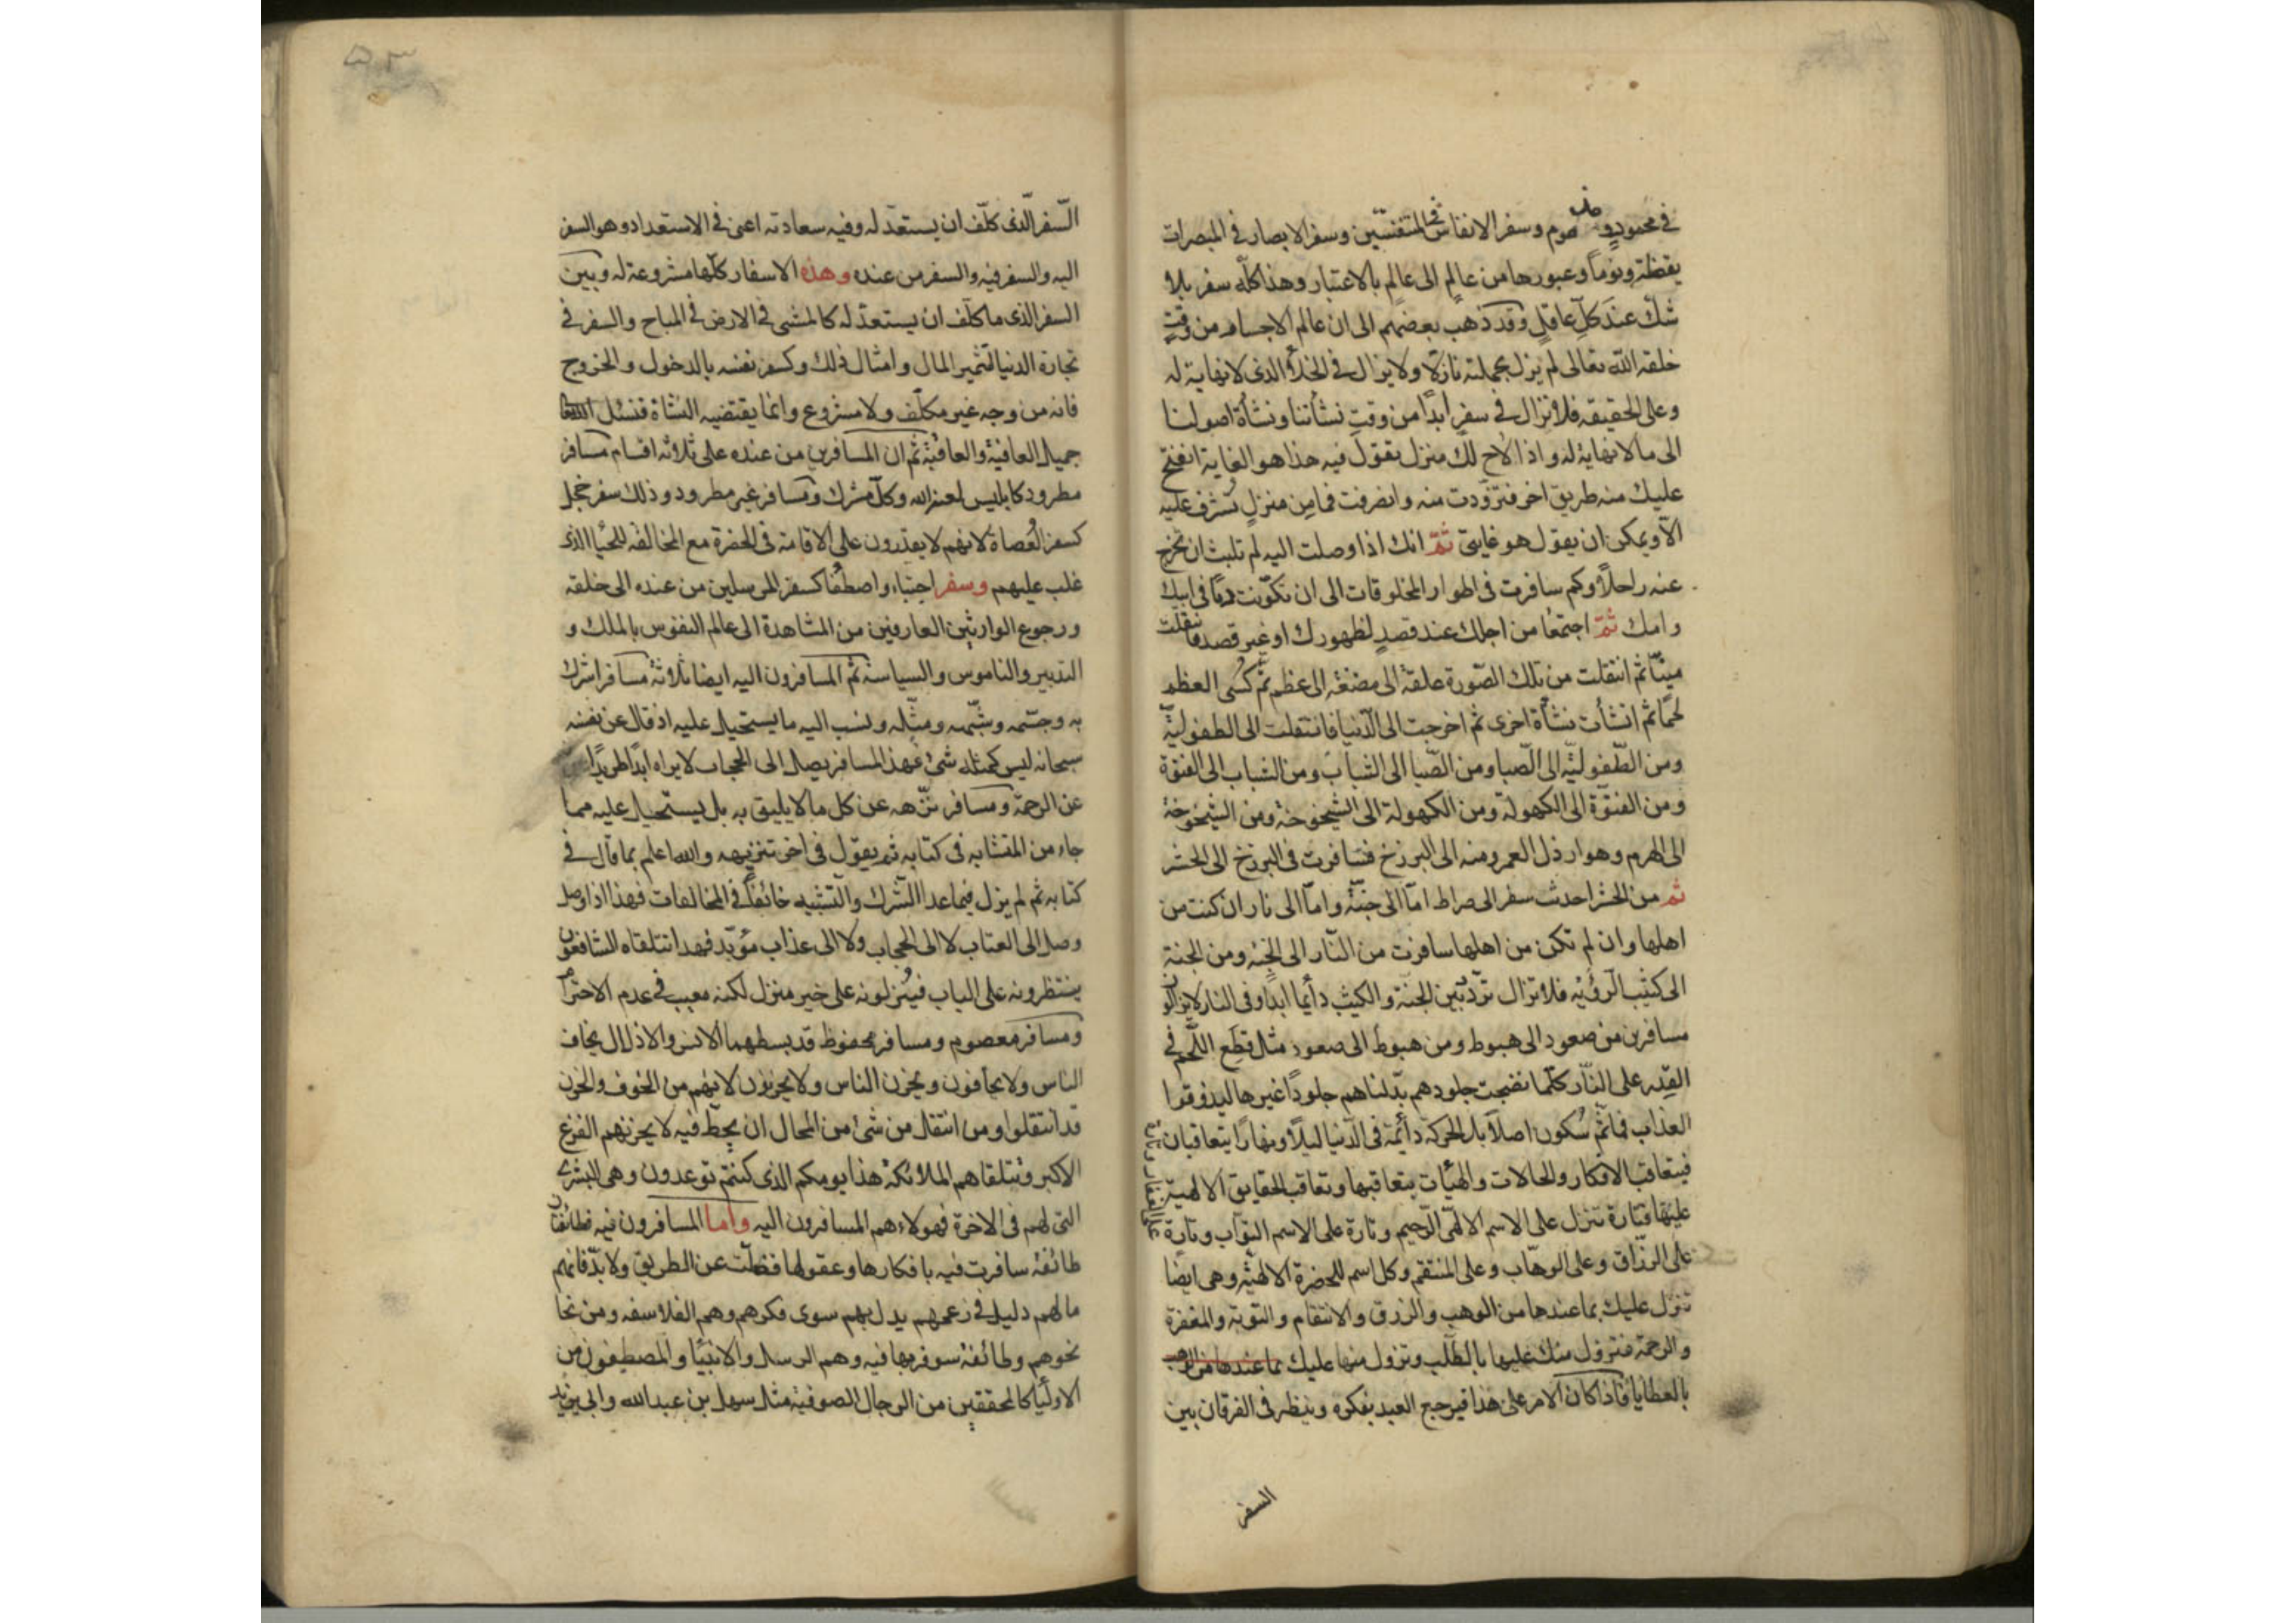 في محمود ومذموم وسفر الانفاس في المتنفسين وسفر الابصار في المبصرات
يقظة ونوماً وعبورها من عالمٍ الى عالم بالاعتبار وهذا كلّه سفر بلا
شكّ عند كلّ عاقلٍ وقد ذهب بعضهم الى ان عالم الاجسام من وقت
خلقه الله تعالى لم يزل بجملته نازلا ولا يزال في الخلاء الذى لا نهاية له
وعلى الحقيقه فلا نزال في سفرٍ ابداً من وقت نشأتنا ونشأة اصولنا
الى ما لا نهاية له واذا لاح لك منزل تقول فيه هذا هو الغاية انفتح
عليك منه طريق اخر فتزوّدت منه وانصرفت فما من منزلٍ تشرف عليه
الّا ويمكن ان يقول هو غايتى ثمّ انك اذا وصلت اليه لم تلبث ان تخرج
عنه راحلاً وكم سافرت فى اطوار المخلوقات الى ان تكوّنت دمًا فى ابيك
وامك ثمّ اجتمعا من اجلك عند قصدٍ لظهورك او غير قصد فانتقلت
منيّا ثم انتقلت من تلك الصّورة علقة الى مضغة الى عظم ثم كُسى العظم
لحمًا ثم انشأت نشأة اخرى ثم اخرجت الى الدّنيا فانتقلت الى الطفوليّة
ومن الطّفوليّة الى الصّبا ومن الصّبا الى الشباب ومن الشباب الى الفتوّة
ومن الفتوّة الى الكهولة ومن الكهولة الى الشيخوخة ومن الشيخوخة
الى الهرم وهو ارذل العمر ومنه الى البرزخ فسافرت فى البرزخ الى الحشر
ثم من الحشر احدث سفر الى صراط امّا الى جنّة وامّا الى نار ان كنت من
اهلها وان لم تكن من اهلها سافرت من النّار الى الجنّة ومن الجنة
الى كثيب الرّؤية فلا تزال تردّد بين الجنة والكثيب دائما ابدًا وفى النار لا يزالون
مسافرين من صعود الى هبوط ومن هبوط الى صعود مثل قطع اللّحم في
القِدر على النّار كلّما نضجت جلودهم بدّلناهم جلودًا غيرها ليذوقوا
العذاب فما ثمّ سُكون اصلاً بل الحركة دائمة فى الدّنيا ليلاً ونهارًا يتعاقبان
فيتعاقب الافكار والحالات والهيأت بتعاقبها وتعاقب الحقايق الالهية
عليها فتارة تنزل على الاسم الالهّى الرّحيم وتارة على الاسم التوّاب وتارة
على الغفار وتارة
على الرزّاق وعلى الوهّاب وعلى المنتقم وكل اسم للحضرة الالهيّة وهى ايضًا
تنزل عليك بما عندها من الوهب والرزق والانتقام والتوبة والمغفرة
والرحمة فنزول منك عليها بالطّلب ونزول منها عليك بما عندها من
بالعطايا فاذا كان الامر على هذا فيرجع العبد بفكره وينظر فى الفرقان بين
السفر
السّفر الّذى كلّف ان يستعدّ له وفيه سعادته اعنى في الاستعداد وهو السفر
اليه والسفر فيه والسفر من عنده وهذه الاسفار كلّها مشروعة له وبين
السفر الذى ما كلّف ان يستعدّ له كالمشى في الارض في المباح والسفر في
تجارة الدنيا لتثمير المال وامثال ذلك وكسفر نفسه بالدخول والخروج
فانه من وجه غير مكلّف ولا مشروع وانما يقتضيه النشأة فنسئل الله
جميل العافية والعاقبة ثم ان المسافرين من عنده على ثلاثه اقسام مسافر
مطرود كابليس لعنه الله وكلّ مشرك ومسافر غير مطرود وذلك سفر خجل
كسفر العُصاة لانهم لا يقدرون على الاقامة فى الحضرة مع المخالفه للحيا الذى
غلب عليهم وسفر اجتباء واصطفا كسفر المرسلين من عنده الى خلقه
ورجوع الوارثين العارفين من المشاهدة الى عالم النفوس بالملك و
التدبير والناموس والسياسة ثمّ المسافرون اليه ايضا ثلاثة مسافر اشرك
به وجسّمه وشبّهه ومثّله ونسب اليه ما يستحيل عليه اذ قال عن نفسه
سبحانه ليس كمثله شئ فهذا المسافر يصل الى الحجاب لا يراه ابدًا طريدًا
عن الرحمة ومسافر نزّهه عن كل ما لا يليق به بل يستحيل عليه مما
جاء من المتشابه فى كتابه ثم يقول فى اخر تنزيهه والله اعلم بما قال في
كتابه ثم لم يزل فيما عدا الشّرك والتّشبيه خائضًا في المخالفات فهذا اذا وصل
وصل الى العتاب لا الى الحجاب ولا الى عذاب مؤبّد فهذا تتلقاه الشافعون
ينتظرونه على الباب فيُنزلونه على خير منزل لكنه معيب في عدم الاحترام
ومسافر معصوم ومسافر محفوظ قد بسطهما الانس والاذلال يخاف
الناس ولا يخافون ويحزن الناس ولا يحزنون لانهم من الخوف والحزن
قد انتقلوا ومن انتقل من شئ من المحال ان يحطّ فيه لا يحزنهم الفزع
الاكبر وتتلقاهم الملائكة هذا يومكم الذى كنتم توعدون وهى البشرى
التى لهم فى الاخرة فهولاء هم المسافرون اليه واما المسافرون فيه فطائفتان
طائفة سافرت فيه بافكارها وعقولها فضلّت عن الطريق ولا بدّ فانهم
ما لهم دليل في زعمهم يدل بهم سوى فكرهم وهم الفلاسفه ومن نحا
نحوهم وطائفة سوفر بها فيه وهم الرسل والانبيا والمصطفون من
الاوليا كالمحققين من الرجال الصوفية مثل سهل بن عبد الله وابى يزيد